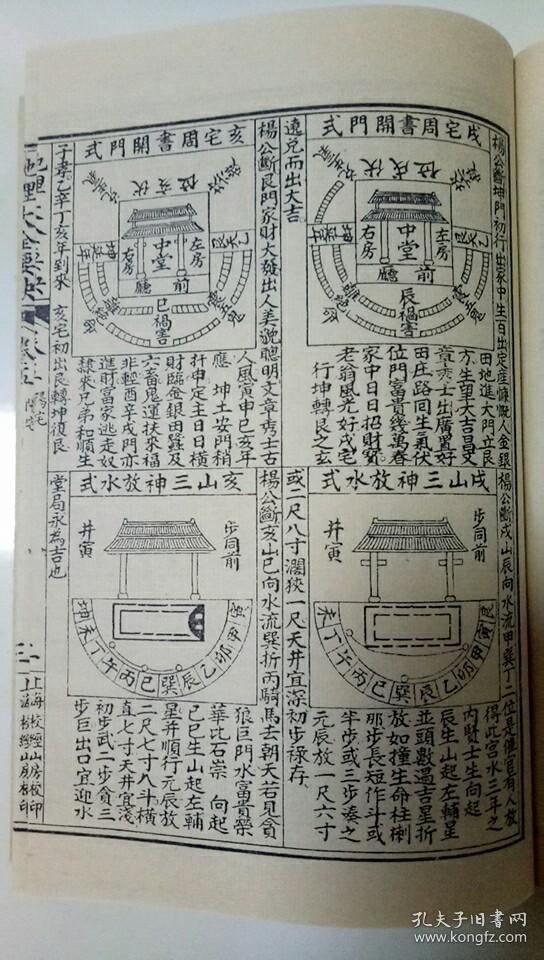 戌宅周書開門式
伏戌位
中堂
左房
右房
前廳
辰禍害
楊公斷坤門初行出家中生百出定産慷慨人金銀
田地進大門立艮
方生里大吉昌文
章秀士出廣置好
田庄路同生氣伏
位門富貴幾萬春
家中日日招財寶
老翁風光好戌宅
行坤轉艮之玄
遠兌而出大吉
戌山三神放水式
步同前
井寅
未丁午丙巳巽辰乙卯甲寅艮
楊公斷戌山辰向水流甲巽丁二位是催官有人放
得此宮水三年之
内財士生向起
辰生山起左輔星
並頭數過吉星折
放如撞生命柱楋
那步長短作斗或
半步或三步湊之
元辰放一尺六寸
或二尺八寸濶狹一尺天井宜深初步祿存
亥宅周書開門式
伏亥位
中堂
左房
右房
前廳
巳禍害
楊公斷艮門家財大發出人美貌聰明文章秀士古
人風寅申巳亥年
應坤土安門稍
升申定主日日橫
財臨金銀田蠶及
六畜鬼運扶來福
非輕酉辛戌門亦
進財富家逃走奴
隸來兄弟和順生
子寿乙辛丁亥年到來
亥宅初出艮轉坤復艮
亥山三神放水式
步同前
井寅
坤未丁午丙巳巽辰乙卯甲寅
楊公斷亥山巳向水流巽折丙騎馬去朝天若見貪
狼巨門水富貴榮
華比石崇向起
巳巳生山起左輔
星井順行元辰放
二尺七寸八斗橫
直七寸天井宜淺
初步武二步貪三
步巨出口宜迎水
堂局永為吉也
地理大全要訣
卷五
陽宅
上海校經山房校印
孔夫子旧书网
www.kongfz.com